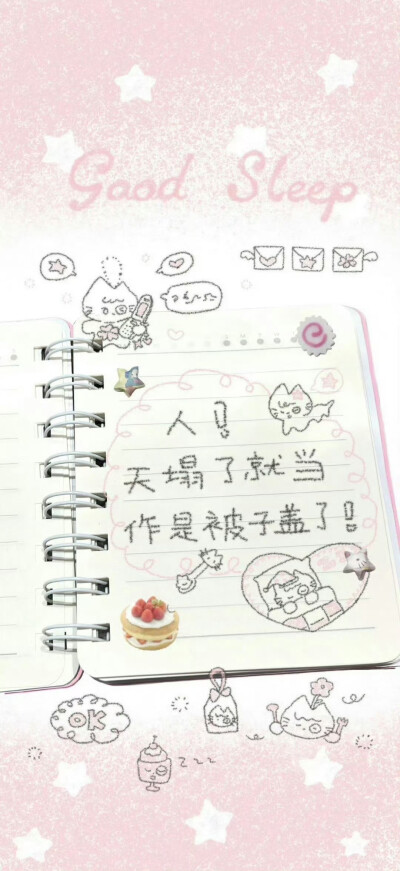 Good Sleep
人！
天塌了就当
作是被子盖了！
OK
zzz